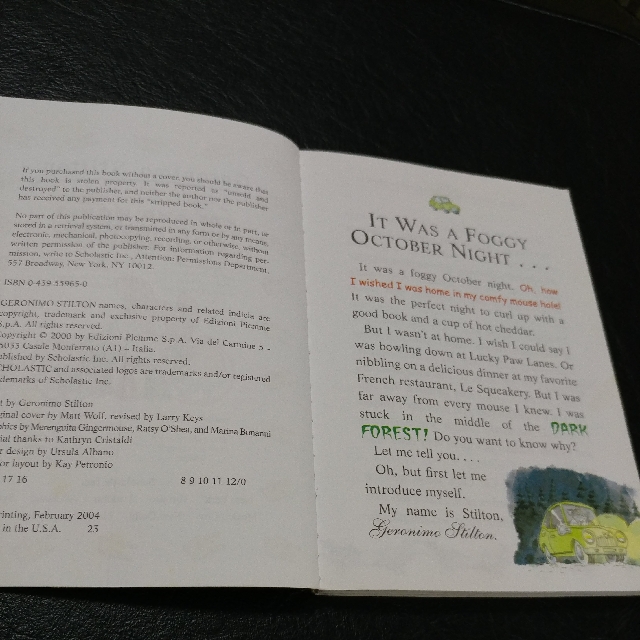 If you purchased this book without a cover, you should be aware that
this book is stolen property. It was reported as "unsold and
destroyed" to the publisher, and neither the author nor the publisher
has received any payment for this "stripped book."
No part of this publication may be reproduced in whole or in part, or
stored in a retrieval system, or transmitted in any form or by any means,
electronic, mechanical, photocopying, recording, or otherwise, without
written permission of the publisher. For information regarding per-
mission, write to Scholastic Inc., Attention: Permissions Department,
557 Broadway, New York, NY 10012.
ISBN 0-439-55965-0
GERONIMO STILTON names, characters and related indicia are
copyright, trademark and exclusive property of Edizioni Piemme
S.p.A. All rights reserved.
Copyright © 2000 by Edizioni Piemme S.p.A. Via del Carmine 5 -
15033 Casale Monferrato (Al) – Italia.
ublished by Scholastic Inc. All rights reserved.
CHOLASTIC and associated logos are trademarks and/or registered
demarks of Scholastic Inc.
t by Geronimo Stilton
ginal cover by Matt Wolf, revised by Larry Keys
phics by Merenguita Gingermouse, Ratsy O'Shea, and Marina Bonanni
ial thanks to Kathryn Cristaldi
r design by Ursula Albano
or layout by Kay Petronio
17 16 8 9 10 11 12/0
rinting, February 2004
in the U.S.A. 23
IT WAS A FOGGY
OCTOBER NIGHT . . .
It was a foggy October night. Oh, how
I wished I was home in my comfy mouse hole!
It was the perfect night to curl up with a
good book and a cup of hot cheddar.
But I wasn't at home. I wish I could say I
was bowling down at Lucky Paw Lanes. Or
nibbling on a delicious dinner at my favorite
French restaurant, Le Squeakery. But I was
far away from every mouse I knew. I was
stuck in the middle of the DARK
FOREST! Do you want to know why?
Let me tell you. . . .
Oh, but first let me
introduce myself.
My name is Stilton,
Geronimo Stilton.